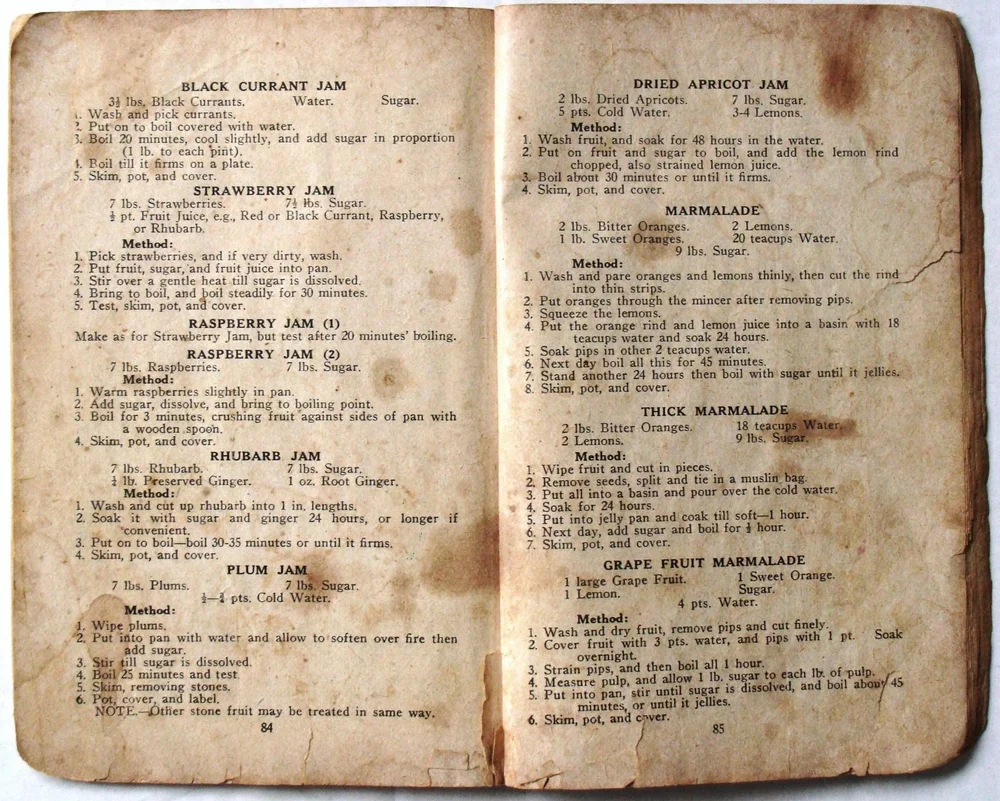 BLACK CURRANT JAM
3½ lbs. Black Currants. Water. Sugar.
1. Wash and pick currants.
2. Put on to boil covered with water.
3. Boil 20 minutes, cool slightly, and add sugar in proportion
(1 lb. to each pint).
4. Boil till it firms on a plate.
5. Skim, pot, and cover.
STRAWBERRY JAM
7 lbs. Strawberries. 7½ lbs. Sugar.
½ pt. Fruit Juice, e.g., Red or Black Currant, Raspberry,
or Rhubarb.
Method:
1. Pick strawberries, and if very dirty, wash.
2. Put fruit, sugar, and fruit juice into pan.
3. Stir over a gentle heat till sugar is dissolved.
4. Bring to boil, and boil steadily for 30 minutes.
5. Test, skim, pot, and cover.
RASPBERRY JAM (1)
Make as for Strawberry Jam, but test after 20 minutes' boiling.
RASPBERRY JAM (2)
7 lbs. Raspberries. 7 lbs. Sugar.
Method:
1. Warm raspberries slightly in pan.
2. Add sugar, dissolve, and bring to boiling point.
3. Boil for 3 minutes, crushing fruit against sides of pan with
a wooden spoon.
4. Skim, pot, and cover.
RHUBARB JAM
7 lbs. Rhubarb. 7 lbs. Sugar.
¼ lb. Preserved Ginger. 1 oz. Root Ginger.
Method:
1. Wash and cut up rhubarb into 1 in. lengths.
2. Soak it with sugar and ginger 24 hours, or longer if
convenient.
3. Put on to boil—boil 30-35 minutes or until it firms.
4. Skim, pot, and cover.
PLUM JAM
7 lbs. Plums. 7 lbs. Sugar.
½—¾ pts. Cold Water.
Method:
1. Wipe plums.
2. Put into pan with water and allow to soften over fire then
add sugar.
3. Stir till sugar is dissolved.
4. Boil 25 minutes and test
5. Skim, removing stones.
6. Pot, cover, and label.
NOTE.—Other stone fruit may be treated in same way.
84
DRIED APRICOT JAM
2 lbs. Dried Apricots. 7 lbs. Sugar.
5 pts. Cold Water. 3-4 Lemons.
Method:
1. Wash fruit, and soak for 48 hours in the water.
2. Put on fruit and sugar to boil, and add the lemon rind
chopped, also strained lemon juice.
3. Boil about 30 minutes or until it firms.
4. Skim, pot, and cover.
MARMALADE
2 lbs. Bitter Oranges. 2 Lemons.
1 lb. Sweet Oranges. 20 teacups Water.
9 lbs. Sugar.
Method:
1. Wash and pare oranges and lemons thinly, then cut the rind
into thin strips.
2. Put oranges through the mincer after removing pips.
3. Squeeze the lemons.
4. Put the orange rind and lemon juice into a basin with 18
teacups water and soak 24 hours.
5. Soak pips in other 2 teacups water.
6. Next day boil all this for 45 minutes.
7. Stand another 24 hours then boil with sugar until it jellies.
8. Skim, pot, and cover.
THICK MARMALADE
2 lbs. Bitter Oranges. 18 teacups Water.
2 Lemons. 9 lbs. Sugar.
Method:
1. Wipe fruit and cut in pieces.
2. Remove seeds, split and tie in a muslin bag.
3. Put all into a basin and pour over the cold water.
4. Soak for 24 hours.
5. Put into jelly pan and coak till soft—1 hour.
6. Next day, add sugar and boil for ½ hour.
7. Skim, pot, and cover.
GRAPE FRUIT MARMALADE
1 large Grape Fruit. 1 Sweet Orange.
1 Lemon. Sugar.
4 pts. Water.
Method:
1. Wash and dry fruit, remove pips and cut finely.
2. Cover fruit with 3 pts. water, and pips with 1 pt. Soak
overnight.
3. Strain pips, and then boil all 1 hour.
4. Measure pulp, and allow 1 lb. sugar to each lb. of pulp.
5. Put into pan, stir until sugar is dissolved, and boil about 45
minutes, or until it jellies.
6. Skim, pot, and cover.
85